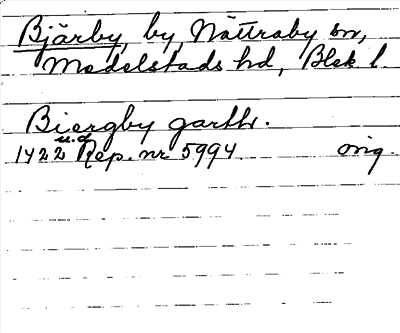 Bjärby, by Nättraby sn,
Medelstads hd, Blek l.
Biergby garth.
1422 u.d. Rep. nr 5994 orig.